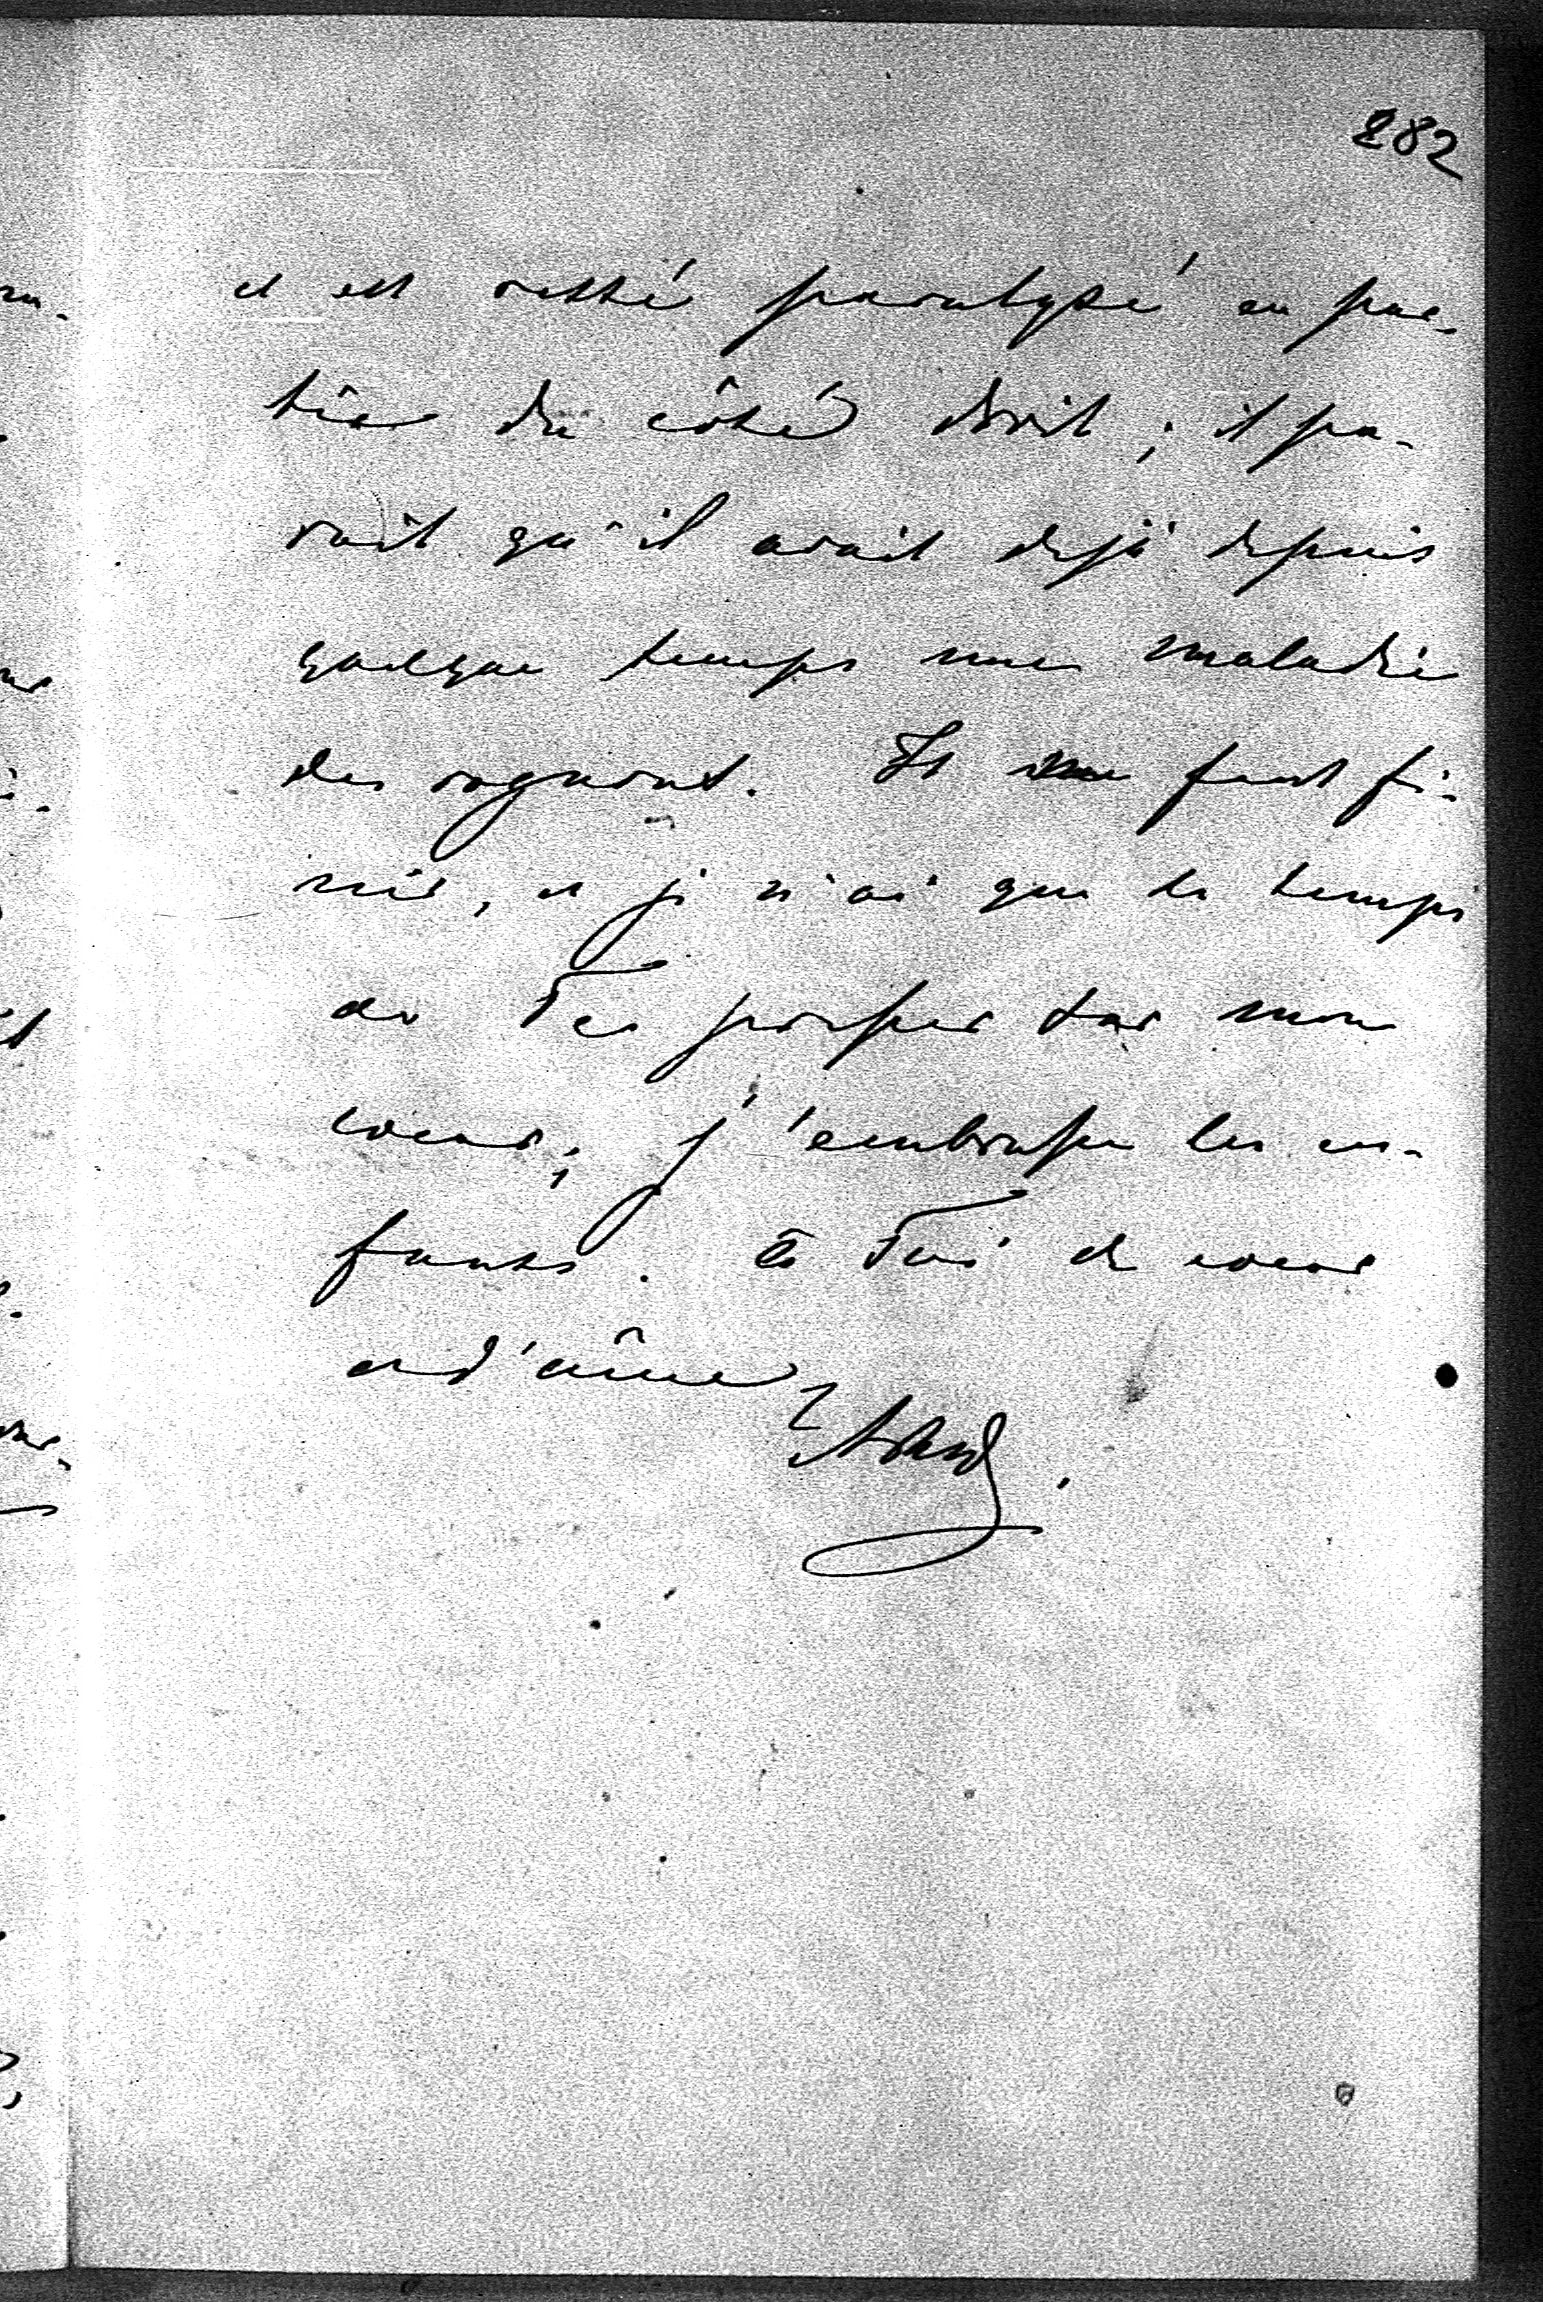 282
et est resté paralysé en par-
tie du côté droit ; il pa-
rait qu'il avait déjà depuis
quelque temps une maladie
des rognons. Il me faut fi-
nir, et je n'ai que le temps
de Te presser sur mon
coeur; j'embrasse les en-
fants. à Toi de coeur
et d'âme